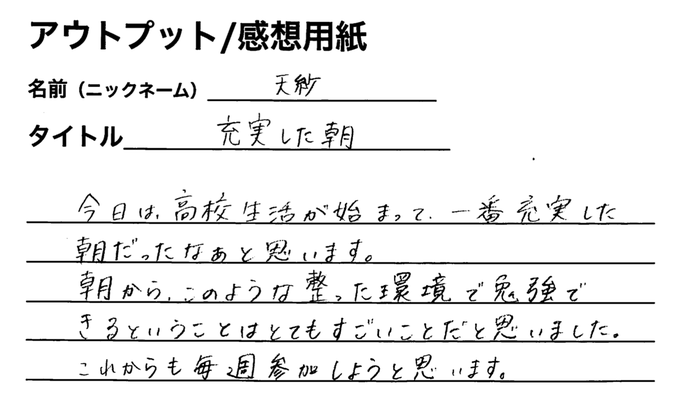 アウトプット/感想用紙
名前（ニックネーム） 天紗
タイトル 充実した朝
今日は、高校生活が始まって、一番充実した
朝だったなぁと思います。
朝から、このような整った環境で勉強で
きるということはとてもすごいことだと思いました。
これからも毎週参加しようと思います。